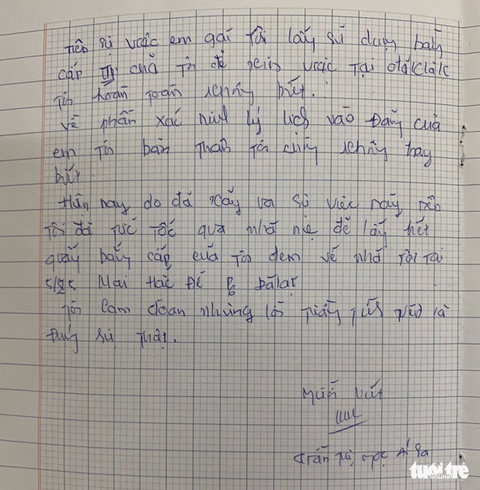 Tiếp sự việc em gái tôi lấy sử dụng bằng
cấp III của tôi để xin việc tại Đắk Lắk
tôi hoàn toàn không biết.
về phần xác minh lý lịch vào Đảng của
em tôi bản thân tôi cũng không hay
biết.
Hôm nay do đã xảy ra sự việc này nên
tôi đã tức tốc qua nhà mẹ để lấy hết
bằng cấp của tôi đem về nhà tôi tại
Mai Hắc Đế Đàlạt
Tôi cam đoan những lời trên là
đúng sự thật.
Người viết
Trần Thị Ngọc Ái Sa
tuổi trẻ